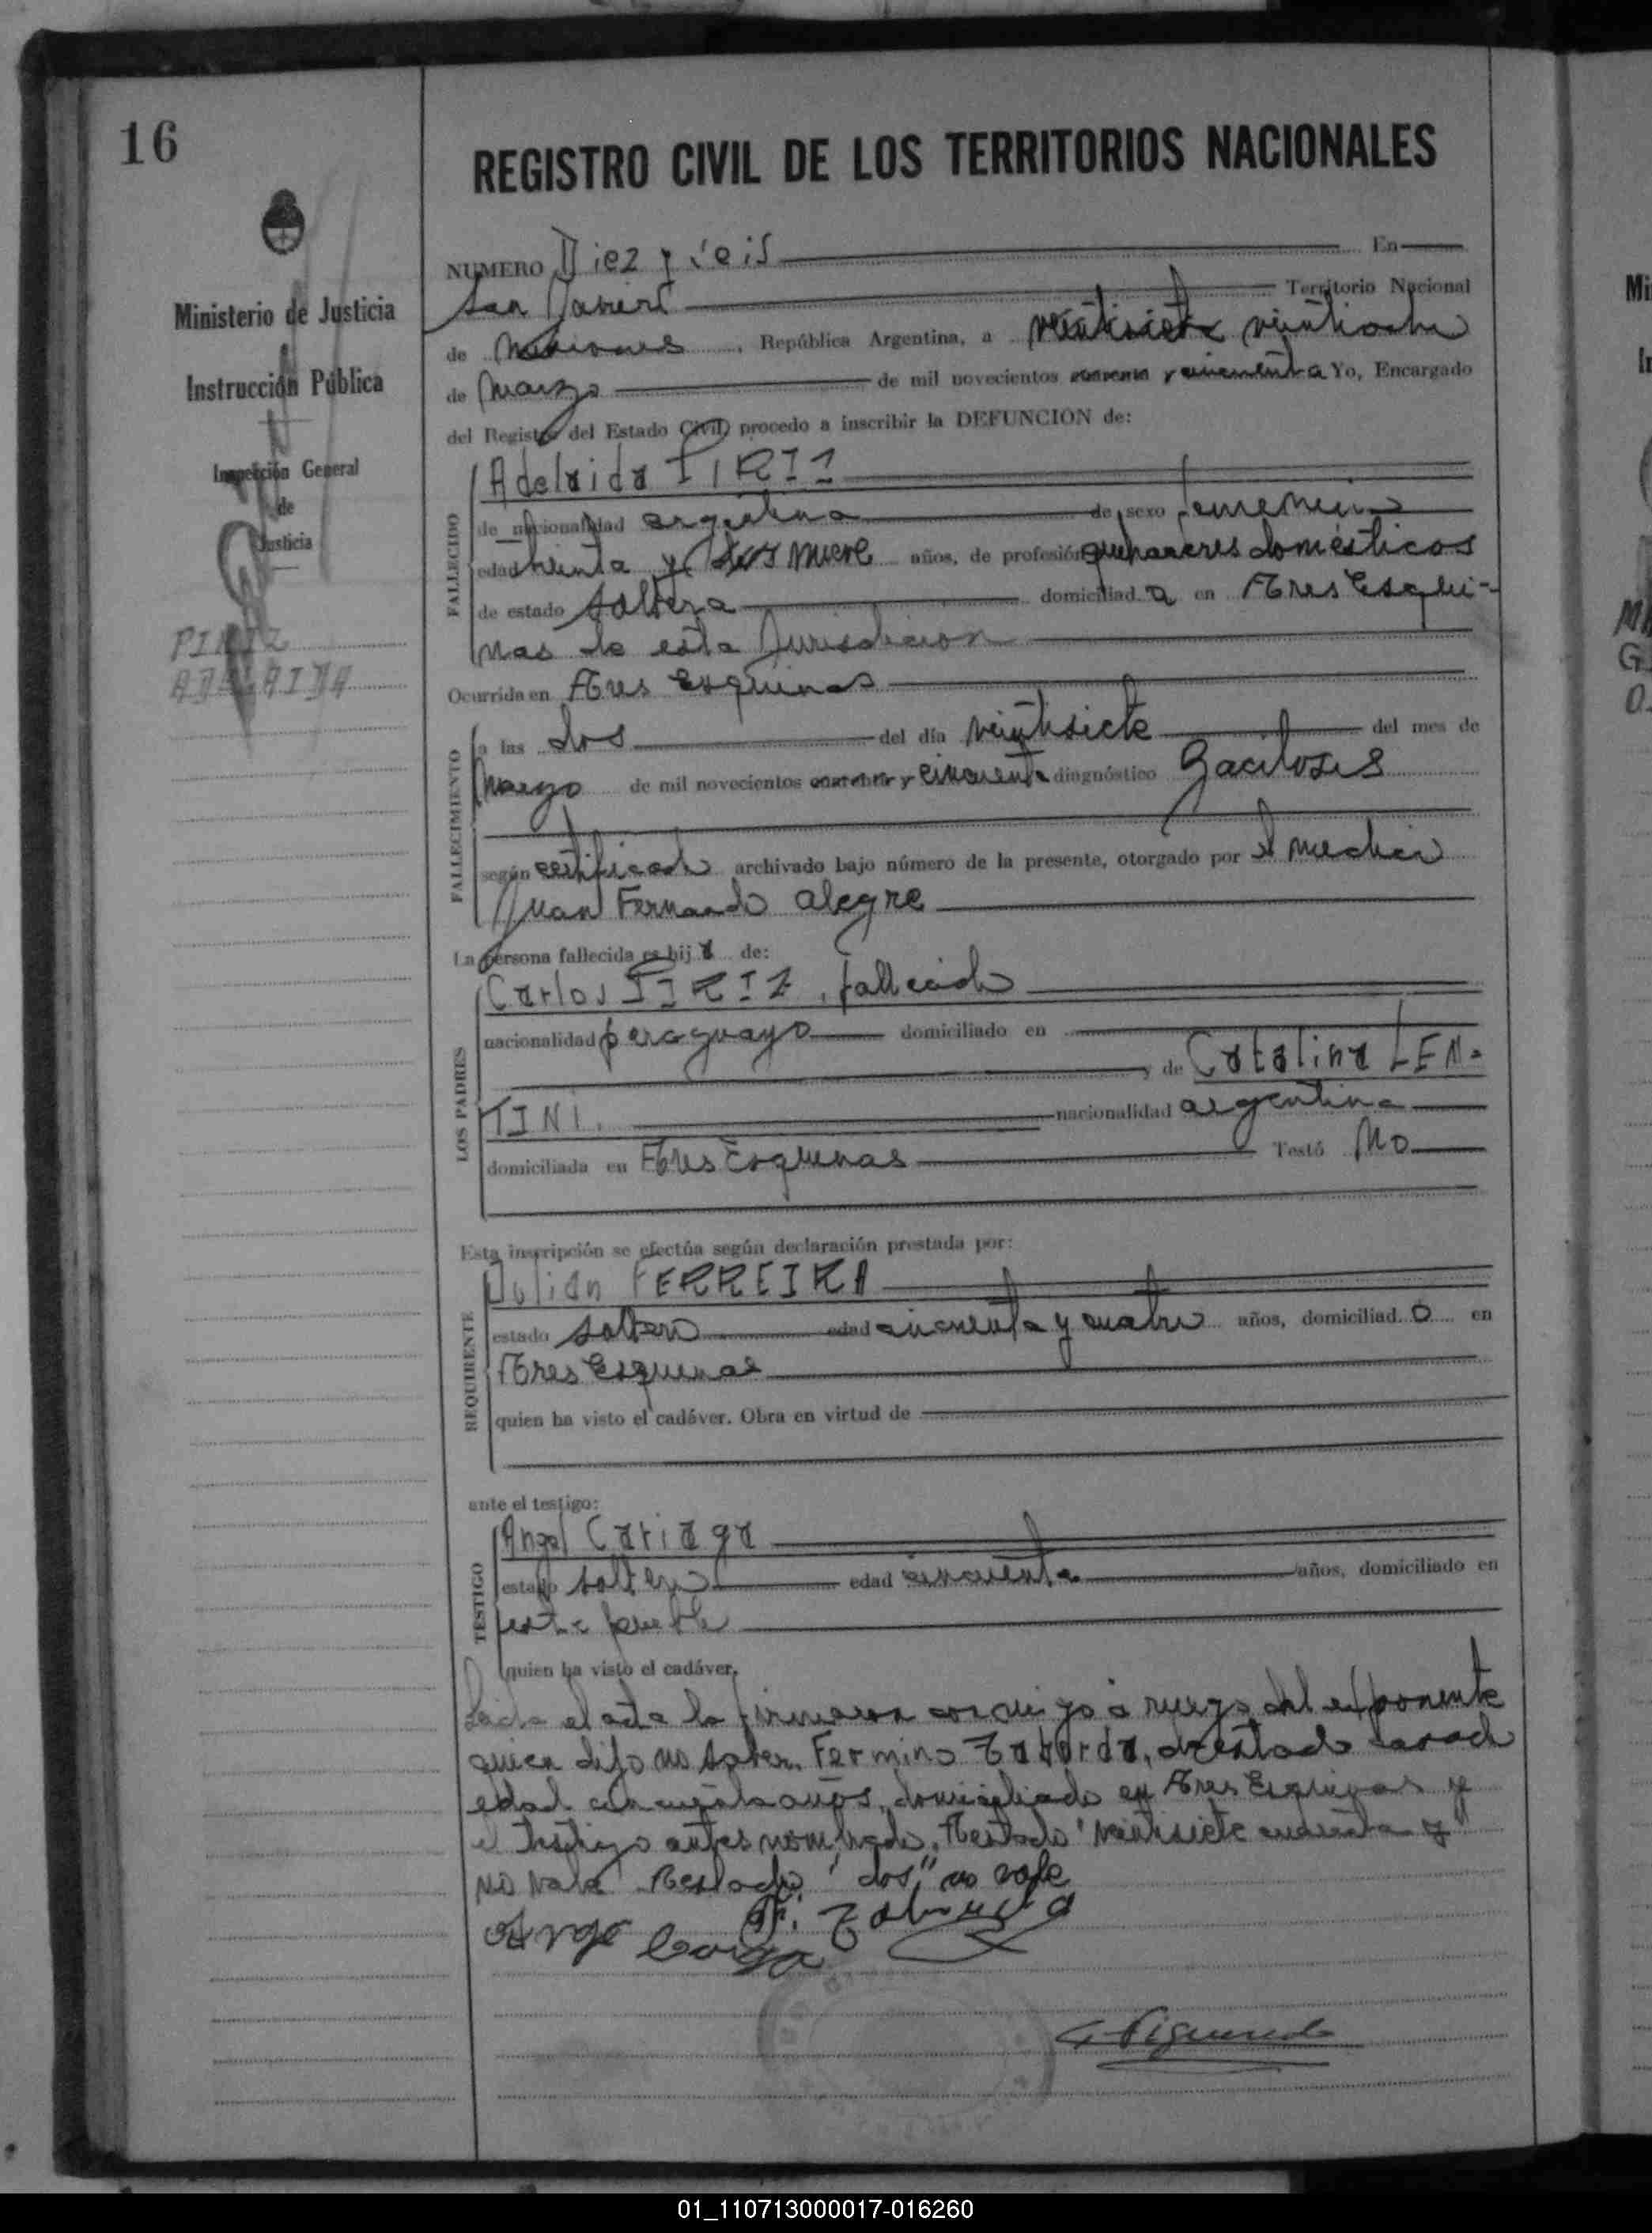 16
REGISTRO CIVIL DE LOS TERRITORIOS NACIONALES
Ministerio de Justicia
Instrucción Pública
Inspección General
de
Justicia
PIRIZ
ADELAIDA
NUMERO Diez y seis En
San Javier Territorio Nacional
de Misiones, República Argentina, a veintisiete veintiocho
de marzo de mil novecientos cuarenta y cincuenta Yo, Encargado
del Registro del Estado Civil, procedo a inscribir la DEFUNCIÓN de:
FALLECIDO
Adelaida PIRIZ
de nacionalidad argentina de sexo femenino
edad treinta y dos nueve años, de profesión quehaceres domésticos
de estado soltera domiciliad a en Tres Esqui-
nas de esta Jurisdicion
Ocurrida en Tres Esquinas
FALLECIMIENTO
a las dos del día veintisiete del mes de
marzo de mil novecientos cuarenta y cincuenta diagnóstico
según certificado archivado bajo número de la presente, otorgado por el medico
Juan Fernando Alegre
La persona fallecida es hij a de:
LOS PADRES
Carlos PIRIZ, fallecido
nacionalidad paraguayo domiciliado en
y de Catalina LEN-
TINI. nacionalidad argentina
domiciliada en Tres Esquinas Testó No
Esta inscripción se efectúa según declaración prestada por:
REQUIRENTE
Julián FERREIRA
estado soltero edad cincuenta y cuatro años, domiciliad o en
Tres Esquinas
quien ha visto el cadáver. Obra en virtud de
ante el testigo:
TESTIGO
Angel Cariaga
estado soltero edad cincuenta años, domiciliado en
este pueblo
quien ha visto el cadáver.
Leida el acta la firmaron conmigo a ruego del exponente
quien dijo no saber, Fermino Taborda, de estado casado
edad cincuenta años, domiciliado en Tres Esquinas y
el testigo antes nombrado. Testado "veintisiete cuarenta y"
no vale Testado "dos" no vale
F. Taborda
Angel Cariaga
01_110713000017-016260